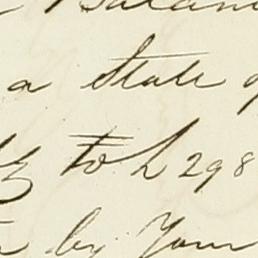 Balan
a State
to L 298
by Your